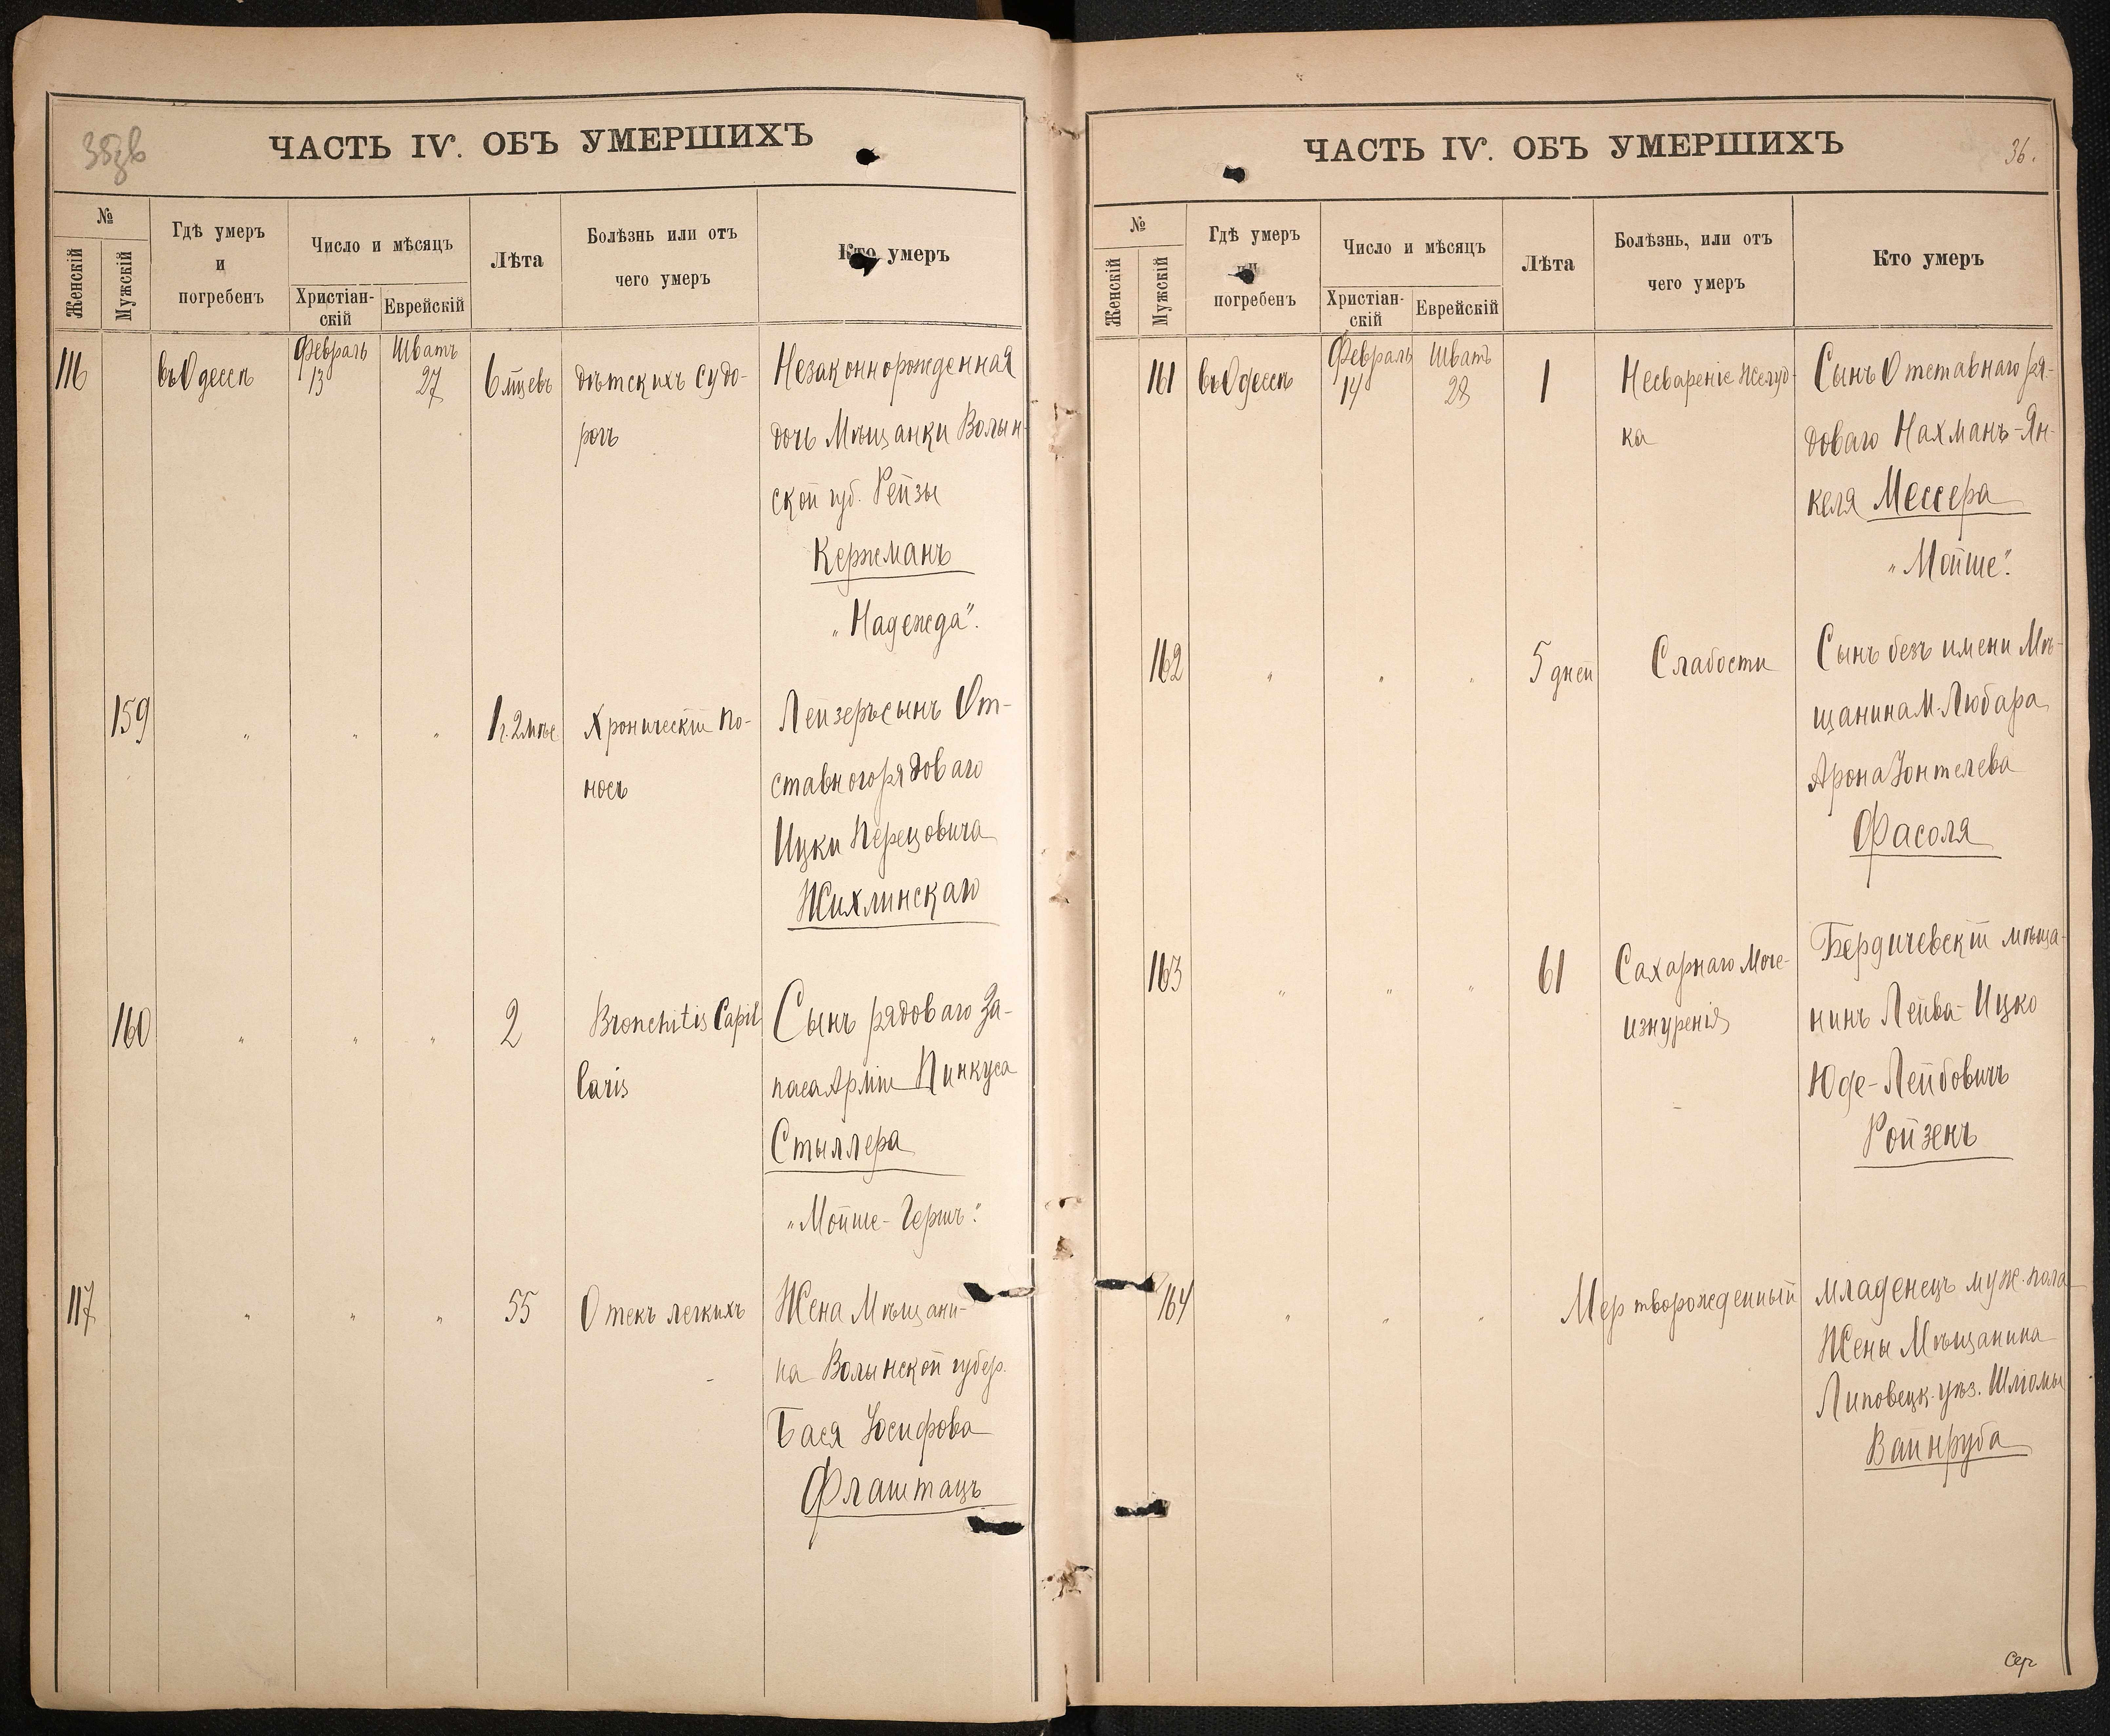 35зв
ЧАСТЬ IV. ОБЪ УМЕРШИХЪ
№
Женскій
Мужскій
Гдѣ умеръ
и
погребенъ
Число и мѣсяцъ
Христіан-
скій
Еврейскій
Лѣта
Болѣзнь или отъ
чего умеръ
Кто умеръ
116 въ Одессѣ Февраль 13 Шватъ 27 6 мцевъ Дѣтскихъ судо-
рогъ
Незаконнорожденная
дочь Мѣщанки Волын-
ской губ. Рейзы
Кержманъ
„Надежда".
159 " " " 1 г. 2 мѣс Хроническій по-
носъ
Лейзеръ сынъ От-
ставного рядоваго
Ицки Перецовича
Жихлинскаго
160 " " " 2 Bronchitis Capil
laris
Сынъ рядоваго За-
паса Арміи Пинкуса
Стыллера
„Мойше-Гершъ".
117 " " " 55 Отекъ легкихъ
Жена Мѣщани-
на Волынской губер.
Бася Юсифова
Флаштацъ
ЧАСТЬ IV. ОБЪ УМЕРШИХЪ
36.
№
Женскій
Мужскій
Гдѣ умеръ
и
погребенъ
Число и мѣсяцъ
Христіан-
скій
Еврейскій
Лѣта
Болѣзнь, или отъ
чего умеръ
Кто умеръ
161 въ Одессѣ Февраль 14 Шватъ 28 1 Несвареніе желуд-
ка
Сынъ Отставнаго ря-
доваго Нахманъ-Ян-
келя Мессера
„Мойше".
162 " " " 5 дней Слабости
Сынъ безъ имени Мѣ-
щанина М. Любара
Арона Іонтелева
Фасоля
163 " " " 61 Сахарнаго Моче-
изнуренія
Бердичевскій мѣща-
нинъ Лейба-Ицко
Юде-Лейбовичъ
Ройзенъ
164 " " " Мертворожденный
младенецъ муж. пола
Жены Мѣщанина
Липовецк. уѣз. Шлюмы
Вайнруба